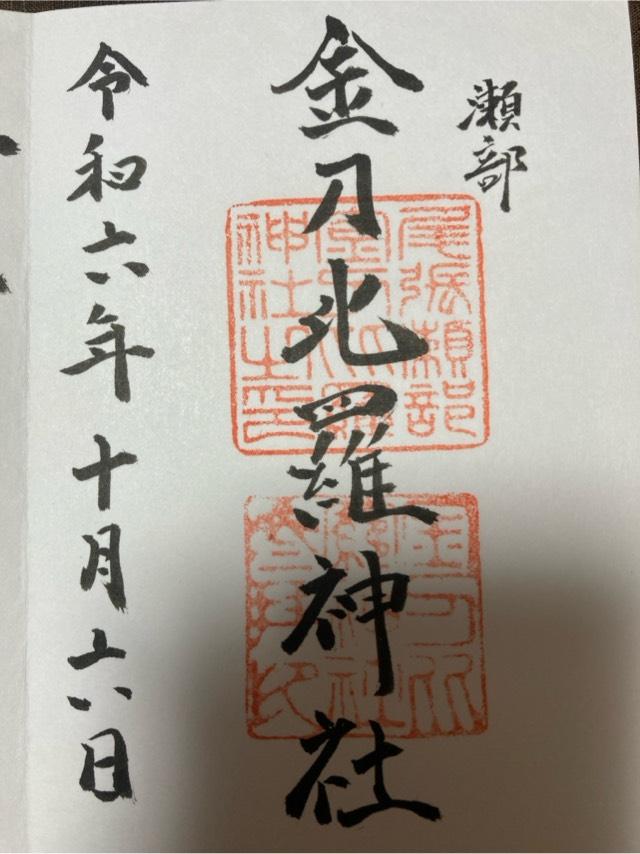 瀬部
金刀比羅神社
令和六年十月六日
尾張瀬部
神社之印